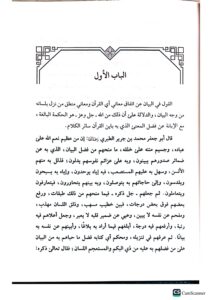 الباب الأول
القول في البيان عن اتفاق معاني آي القرآن ومعاني منطق من نزل بلسانه
من وجه البيان، والدلالة على أن ذلك من الله، جل وعز، هو الحكمة البالغة،
مع الإبانة عن فضل المعنى الذي به باين القرآن سائر الكلام.
قال أبو جعفر محمد بن جرير الطبري: إن من عظيم نعم الله على
عباده، وجسيم مننه على خلقه، ما منحهم من فضل البيان، الذي به عن
ضمائر صدورهم يبينون، وبه على عزائم نفوسهم يدلون، فذلل به منهم
الألسن، وسهل به عليهم المستصعب، فبه إياه يوحدون، وإياه به يسبحون
ويقدسون، وإلى حاجاتهم به يتوصلون، وبه بينهم يتحاورون، فيتعارفون
ويتعاملون. ثم جعلهم، جل ذكره، فيما منحهم من ذلك، طبقات، ورفع
بعضهم فوق بعض درجات، فبين خطيب مسهب، وذلق اللسان مهذب،
ومفحم عن نفسه لا يبين، وعيي عن ضمير قلبه لا يعبر، وجعل أعلاهم فيه
رتبة، وأرفعهم فيه درجة، أبلغهم فيما أراد به بلاغًا، وأبينهم عن نفسه به
بيانًا. ثم عرفهم في تنزيله، ومحكم آي كتابه فضل ما حباهم به من البيان
على من فضلهم به عليه من ذي البكم والمستعجم اللسان، فقال تعالى ذكره:
CS CamScanner